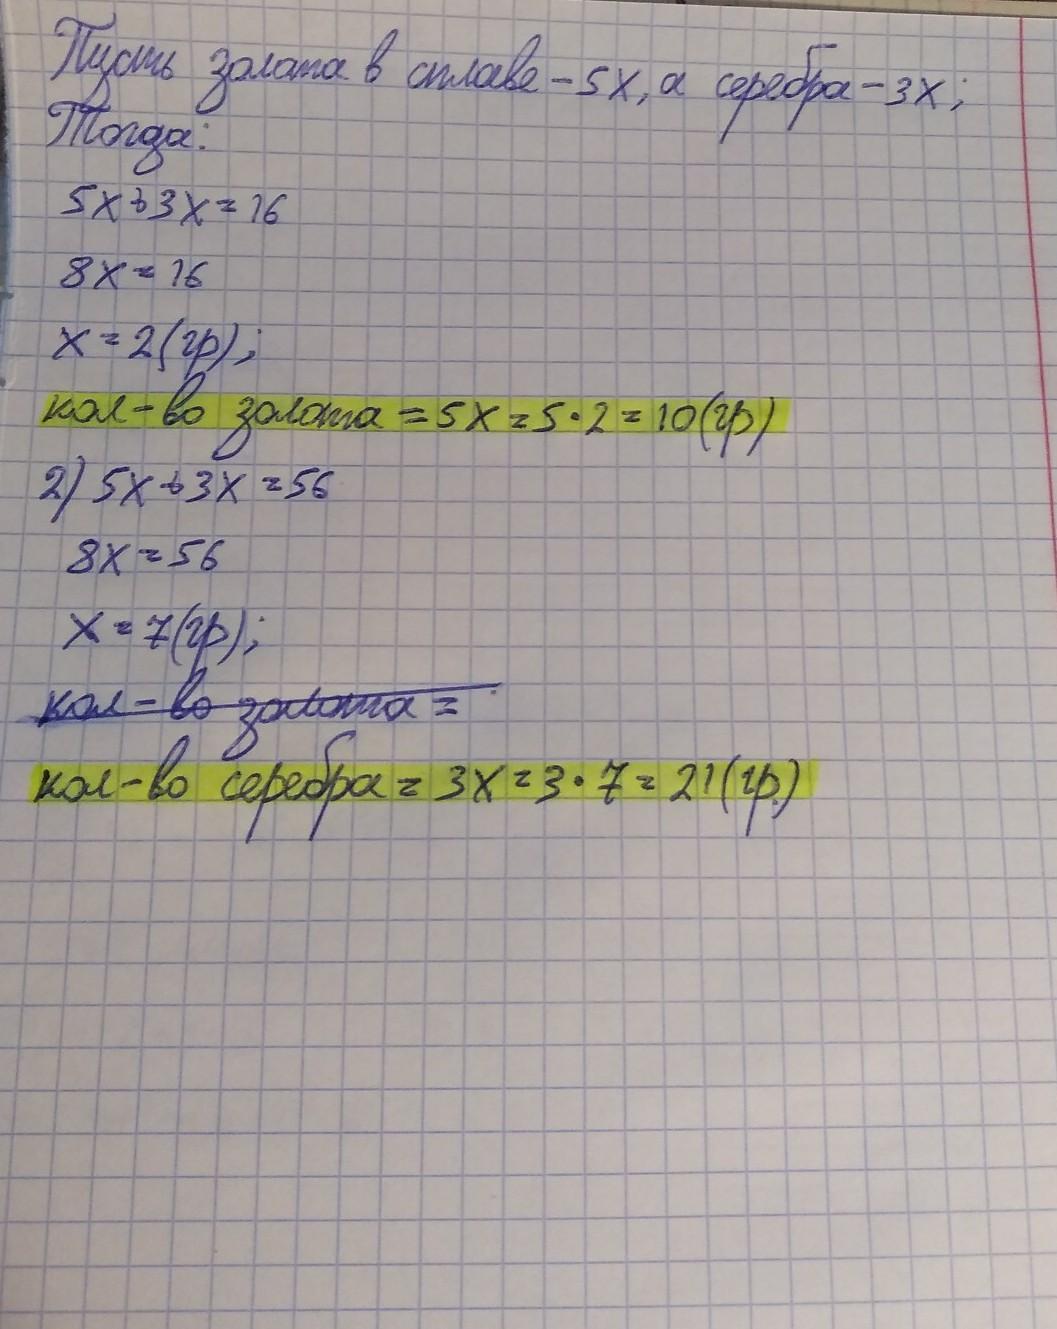 Пусть золота в сплаве - 5х, а серебра - 3х;
Тогда:
5х+3х=16
8х=16
х=2(гр);
кол-во золота = 5х=5·2=10(гр)
2) 5х+3х=56
8х=56
х=7(гр);
кол-во золота =
кол-во серебра = 3х=3·7=21(гр.)